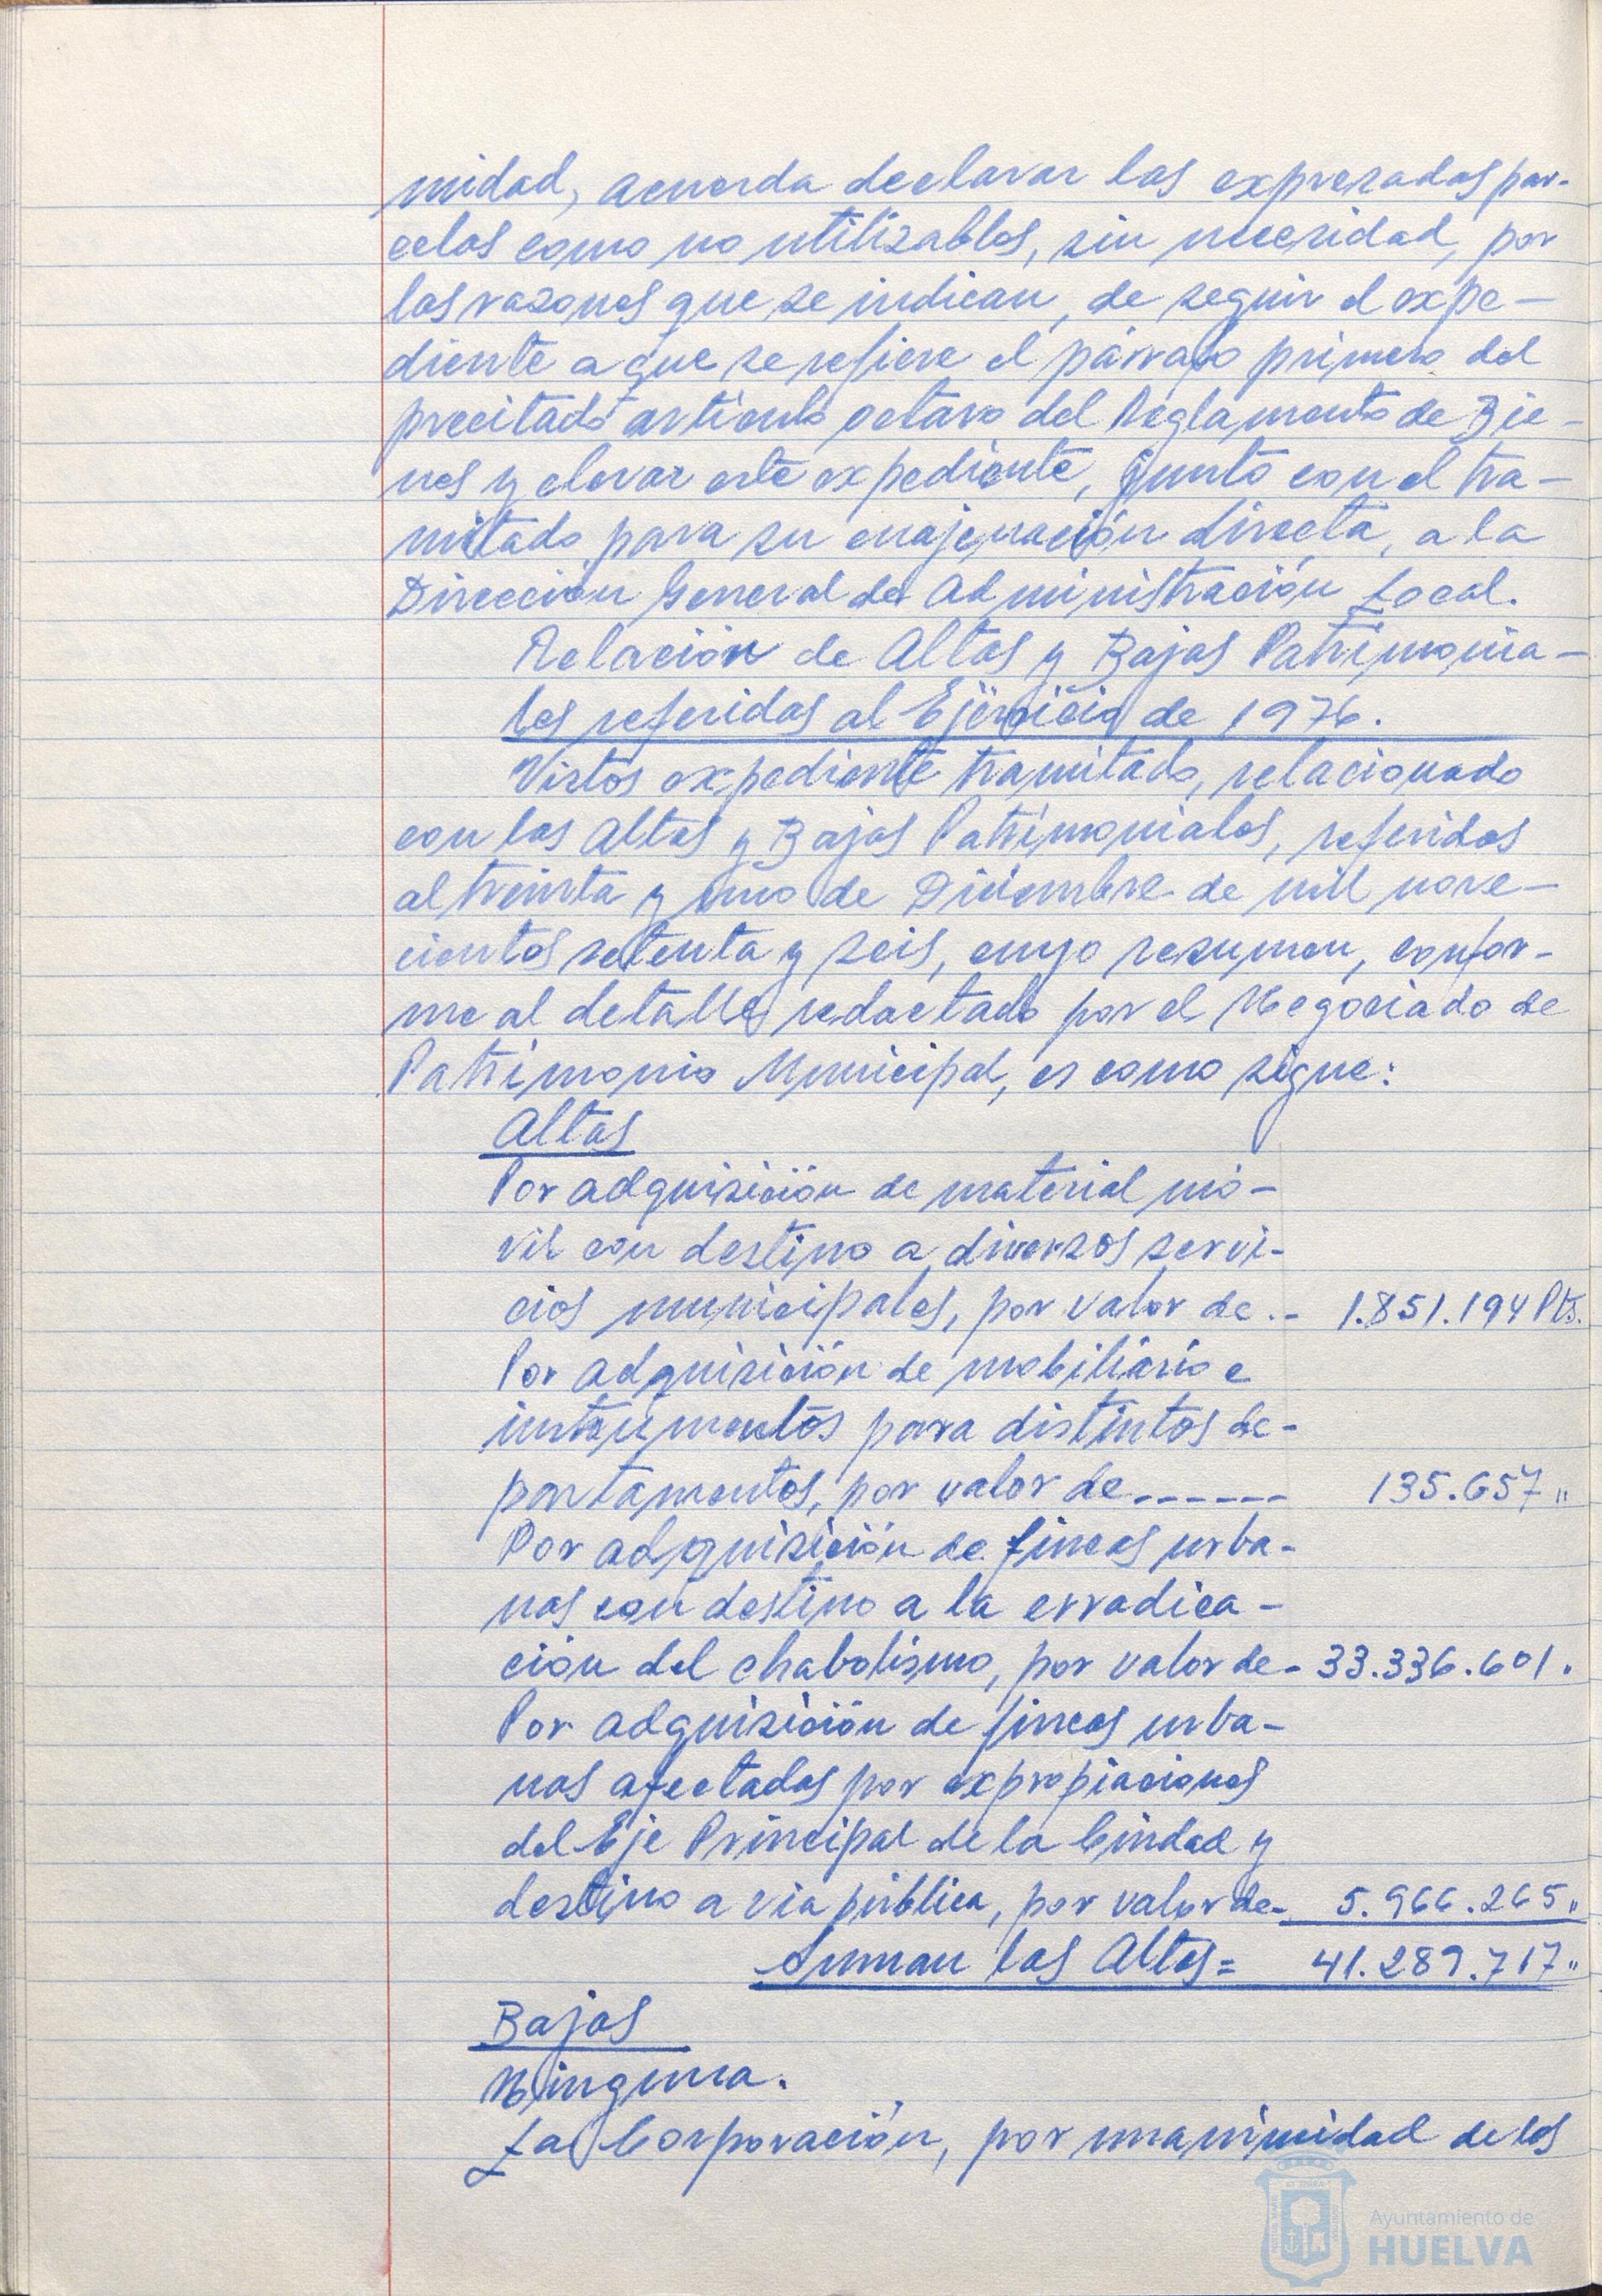 midad, acuerda declarar las expresadas par-
celas como no utilizables, sin necesidad, por
las razones que se indican, de seguir el expe-
diente a que se refiere el párrafo primero del
precitado artículo octavo del Reglamento de Bie-
nes y elevar este expediente, junto con el tra-
mitado para su enajenación directa, a la
Dirección General de Administración Local.
Relación de Altas y Bajas Patrimonia-
les referidas al Ejercicio de 1976.
Vistos expediente tramitado, relacionado
con las Altas y Bajas Patrimoniales, referidas
al treinta y uno de Diciembre de mil nove-
cientos setenta y seis, cuyo resumen, confor-
me al detalle redactado por el Negociado de
Patrimonio Municipal, es como sigue:
Altas
Por adquisición de material mó-
vil con destino a diversos servi-
cios municipales, por valor de .- 1.851.194 Pts.
Por adquisición de mobiliario e
instrumentos para distintos de-
partamentos, por valor de------ 135.657 "
Por adquisición de fincas urba-
nas con destino a la erradica-
ción del chabolismo, por valor de- 33.336.601 "
Por adquisición de fincas urba-
nas afectadas por expropiaciones
del Eje Principal de la Ciudad y
destino a vía pública, por valor de- 5.966.265 "
Suman las Altas = 41.289.717 "
Bajas
Ninguna.
La Corporación, por unanimidad de los
Ayuntamiento de
HUELVA